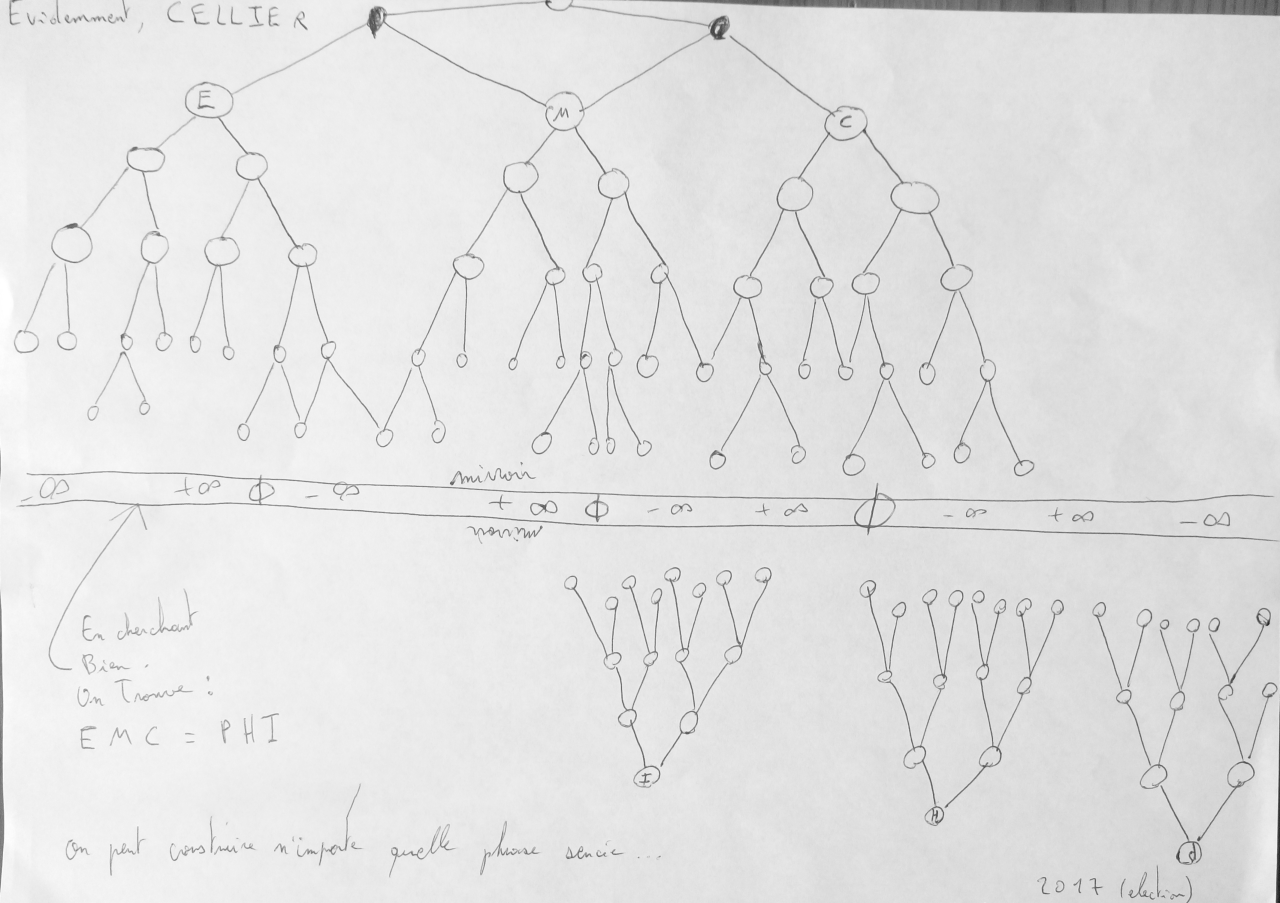 Evidemment, CELLIER
E
M
C
miroir
-∞ +∞ Φ -∞ + ∞ Φ -∞ +∞ Φ -∞ +∞ -∞
miroir
En cherchant
Bien.
On Trouve :
E M C = P H I
I
H
On peut construire n'importe quelle phrase sencée...
2017 (election)